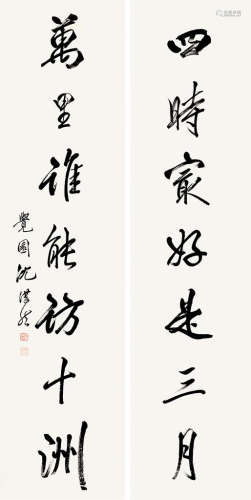 四時最好是三月
萬里誰能訪十洲
覺園沈洪